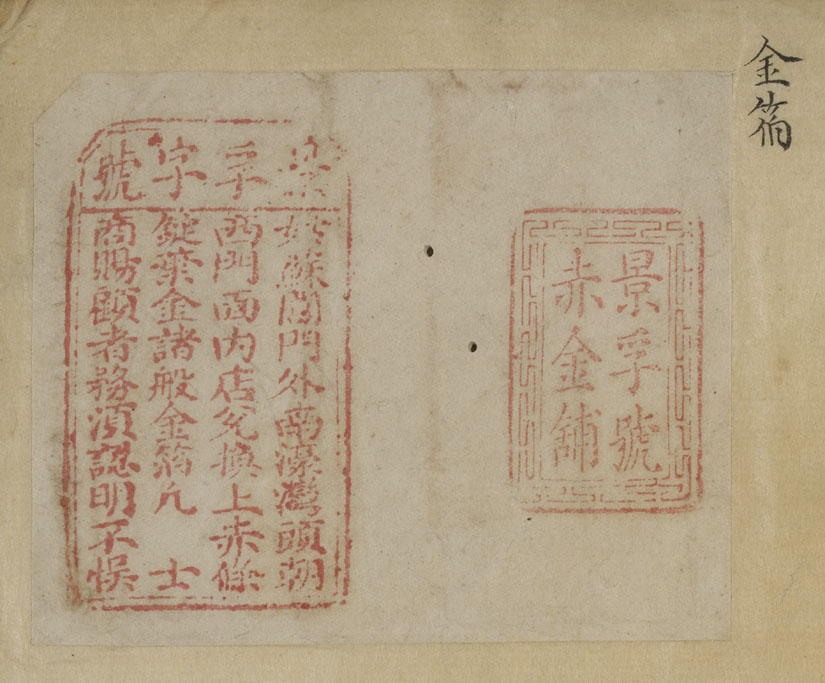 金箔
景孚號
赤金舖
景孚字號
姑蘇閶門外南濠灣頭朝
西門面内店兌換上赤條
錠葉金諸般金箔凡 士
商賜顧者務須認明不悞